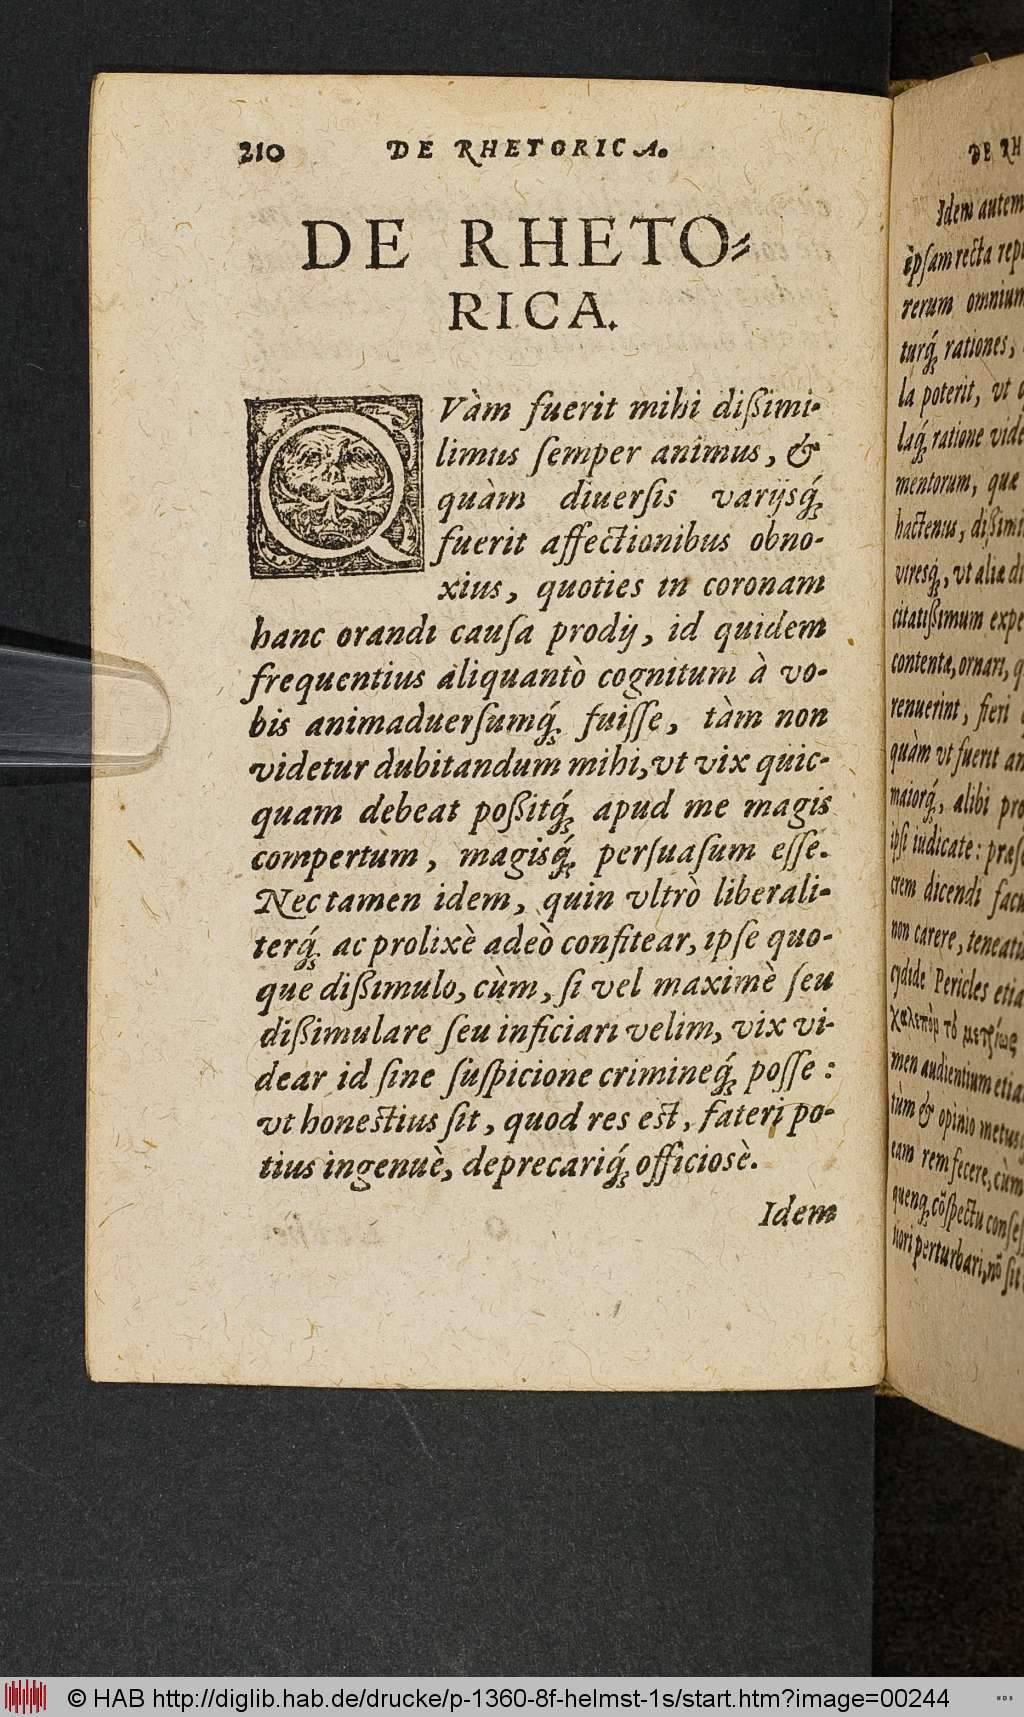 210 DE RHETORICA.
DE RHETO=
RICA.
QVàm fuerit mihi dißimi-
limus semper animus, &
quàm diuersis varijsq́;
fuerit affectionibus obno-
xius, quoties in coronam
hanc orandi causa prodij, id quidem
frequentius aliquantò cognitum à vo-
bis animaduersumq́; fuisse, tàm non
videtur dubitandum mihi, vt vix quic-
quam debeat poßitq́; apud me magis
compertum, magisq́; persuasum esse.
Nec tamen idem, quin vltrò liberali-
terq́; ac prolixè adeò confitear, ipse quo-
que dißimulo, cùm, si vel maximè seu
dißimulare seu inficiari velim, vix vi-
dear id sine suspicione crimineq́; posse:
vt honestius sit, quod res est, fateri po-
tius ingenuè, deprecariq́; officiosè.
Idem
DE RH
Idem autem
èpsam recta rep
rerum omnium
turq́; rationes,
la poterit, vt
laq́; ratione vide
mentorum, quæ
hactenus, dißimi
viresq́;, vt alia di
citatißimum expe
contenta, ornari, q
renuerint, fieri
quàm vt fuerit an
maiorq́;, alibi pre
ipsi iudicate: præs
crem dicendi facu
non carere, teneatis
cydide Pericles etia
χαλεπὸν τὸ μετρίως
men audientium etia
tùm & opinio metus
eam rem fecere, cùm
quenq; cōspectu conses
riori perturbari, nō sit
© HAB http://diglib.hab.de/drucke/p-1360-8f-helmst-1s/start.htm?image=00244